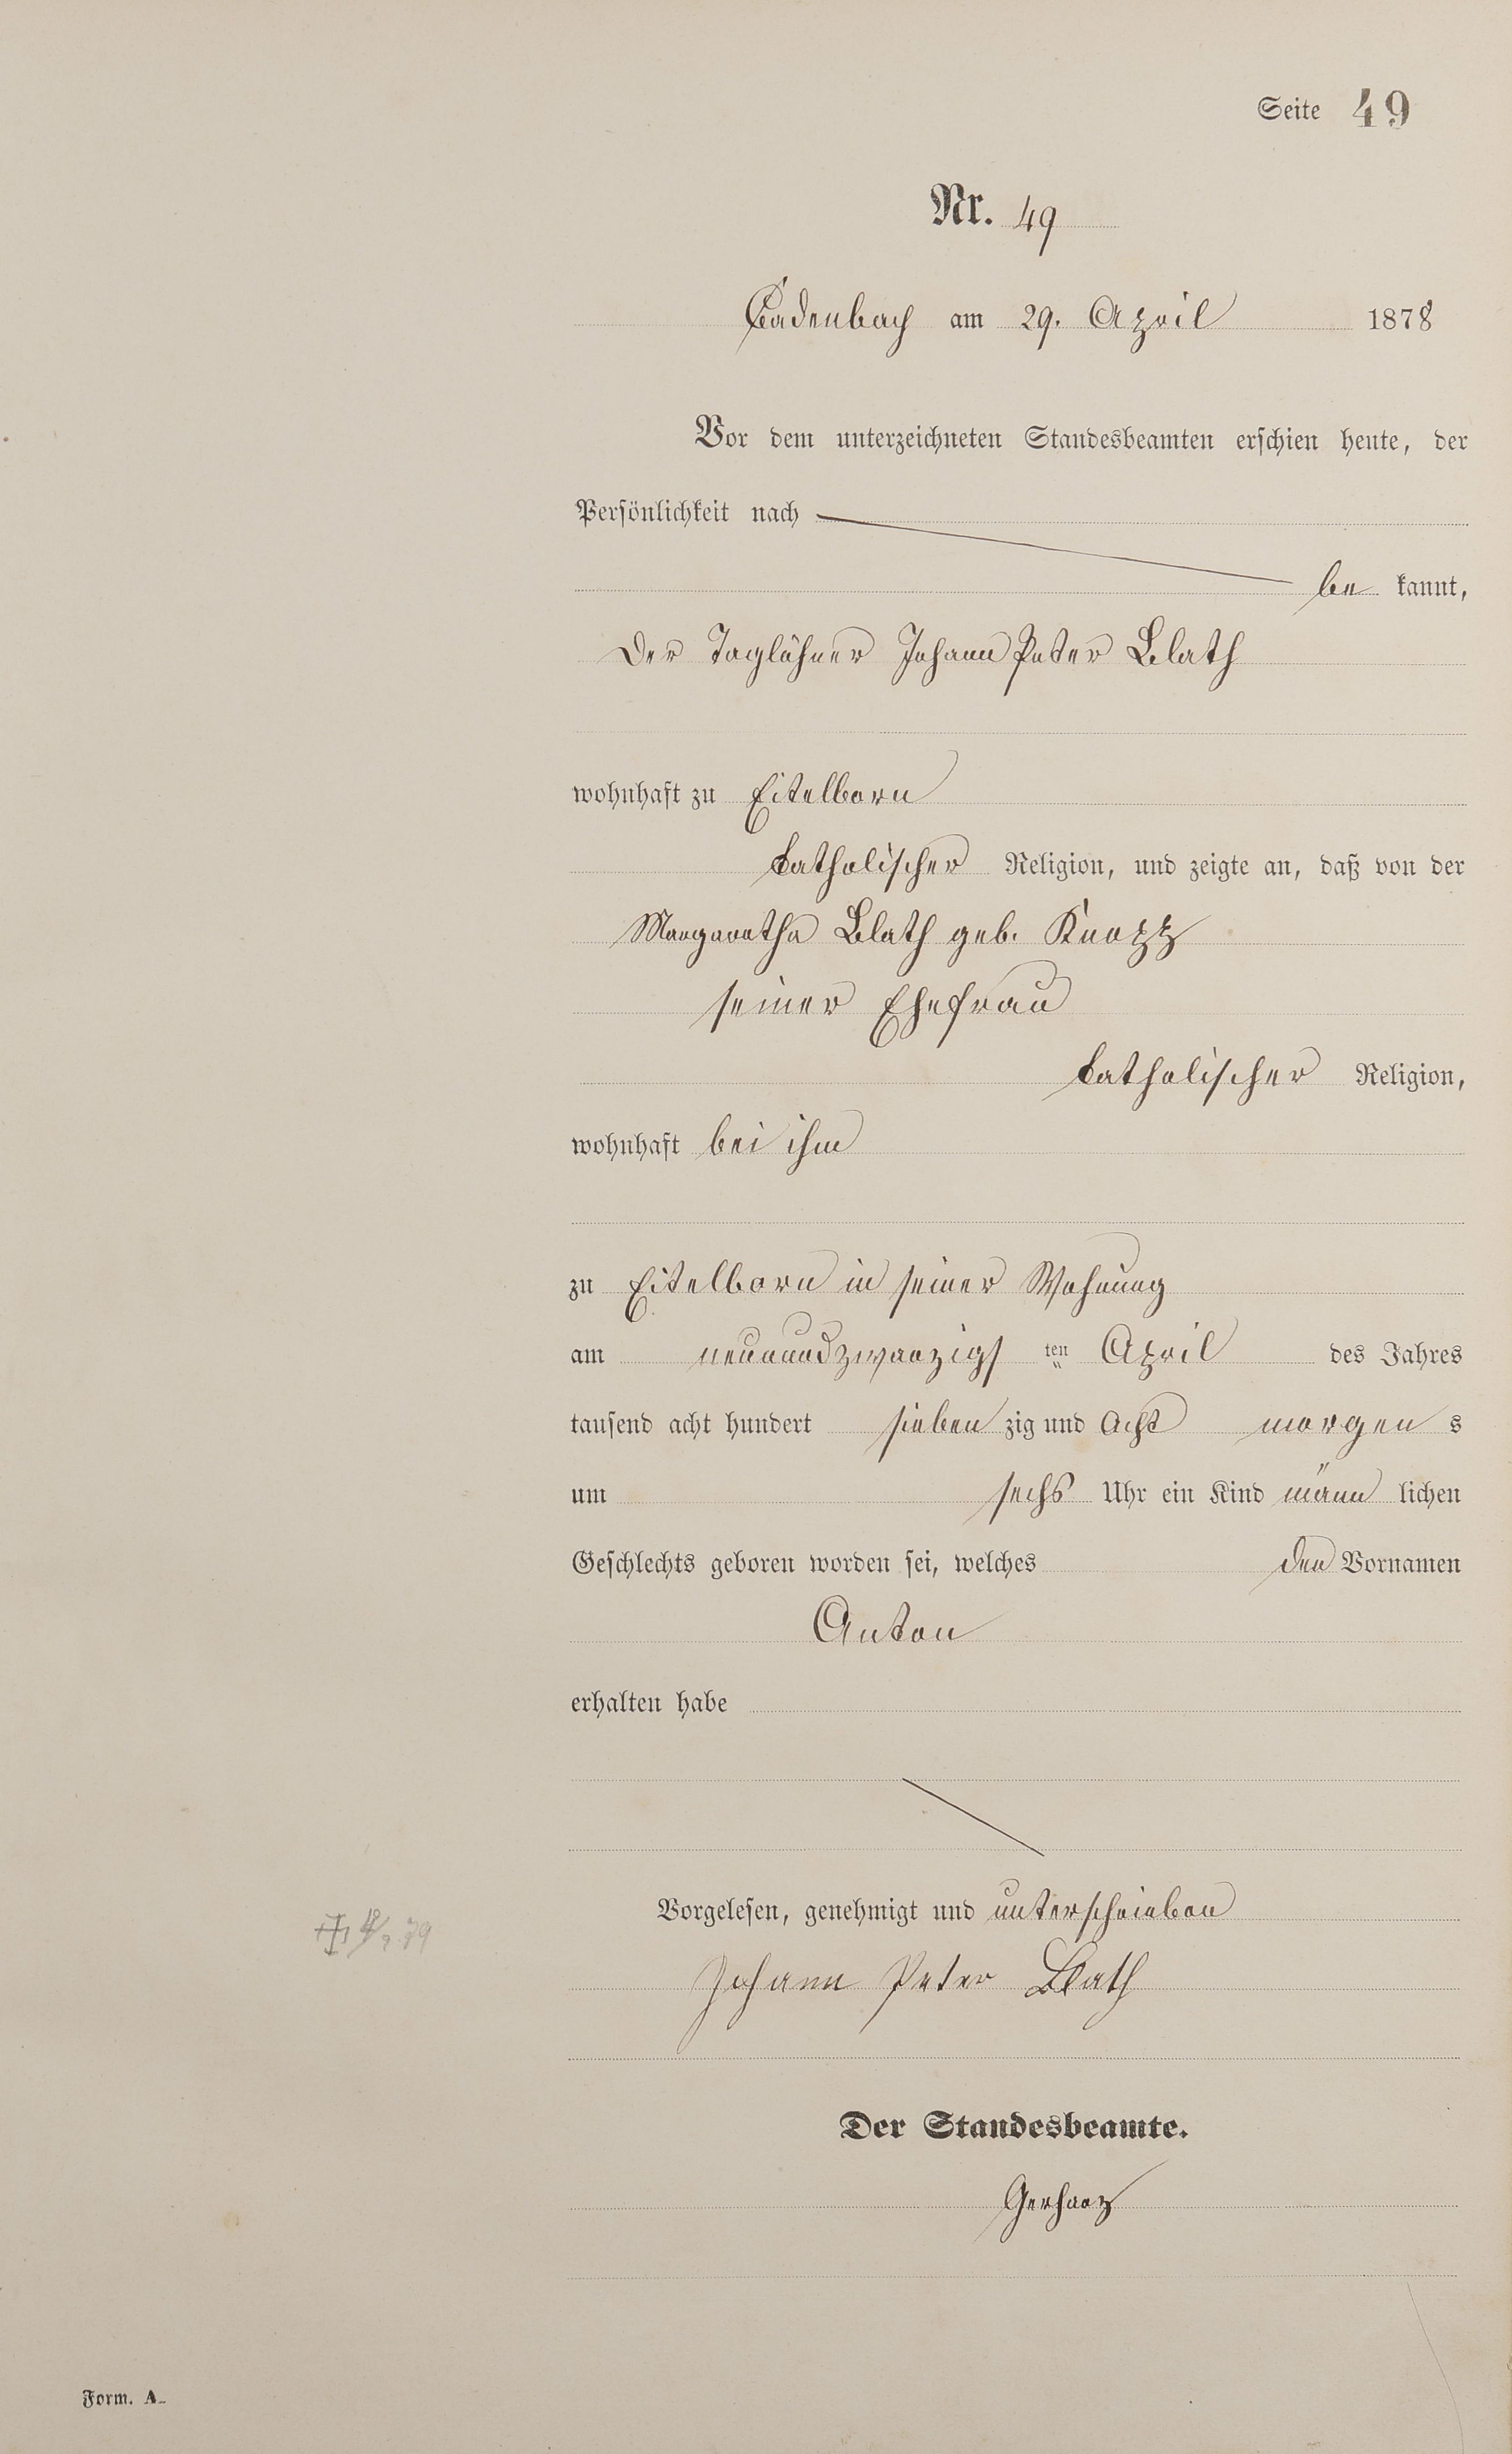 Seite 49
Nr. 49
Cadenbach am 29. April 1878
Vor dem unterzeichneten Standesbeamten erschien heute, der
Persönlichkeit nach
be kannt,
Der Taglöhner Johann Peter Blath
wohnhaft zu Eitelborn
katholischer Religion, und zeigte an, daß von der
Margaretha Blath geb. Knopp
seiner Ehefrau
katholischer Religion,
wohnhaft bei ihm
zu Eitelborn in seiner Wohnung
am neunundzwanzigs ten April des Jahres
tausend acht hundert sieben zig und Acht morgen s
um sechs Uhr ein Kind männ lichen
Geschlechts geboren worden sei, welches den Vornamen
Anton
erhalten habe
Vorgelesen, genehmigt und unterschrieben
Johann Peter Blath
Der Standesbeamte.
Gerharz
Form. A.